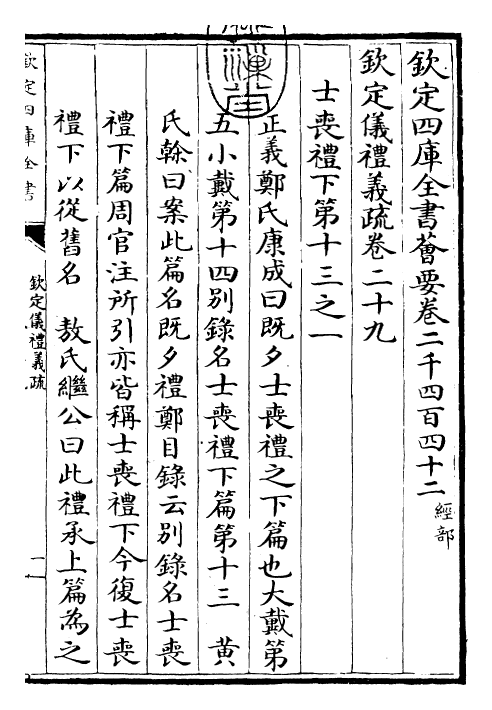 欽定四庫全書薈要卷二千四百四十二 經部
欽定儀禮義疏卷二十九
士喪禮下第十三之一
正義鄭氏康成曰既夕士喪禮之下篇也大戴第
五小戴第十四別錄名士喪禮下篇第十三 黄
氏榦曰案此篇名既夕禮鄭目錄云別錄名士喪
禮下篇周官注所引亦皆稱士喪禮下今復士喪
禮下以從舊名 敖氏繼公曰此禮承上篇為之
欽定四庫全書
欽定儀禮義疏